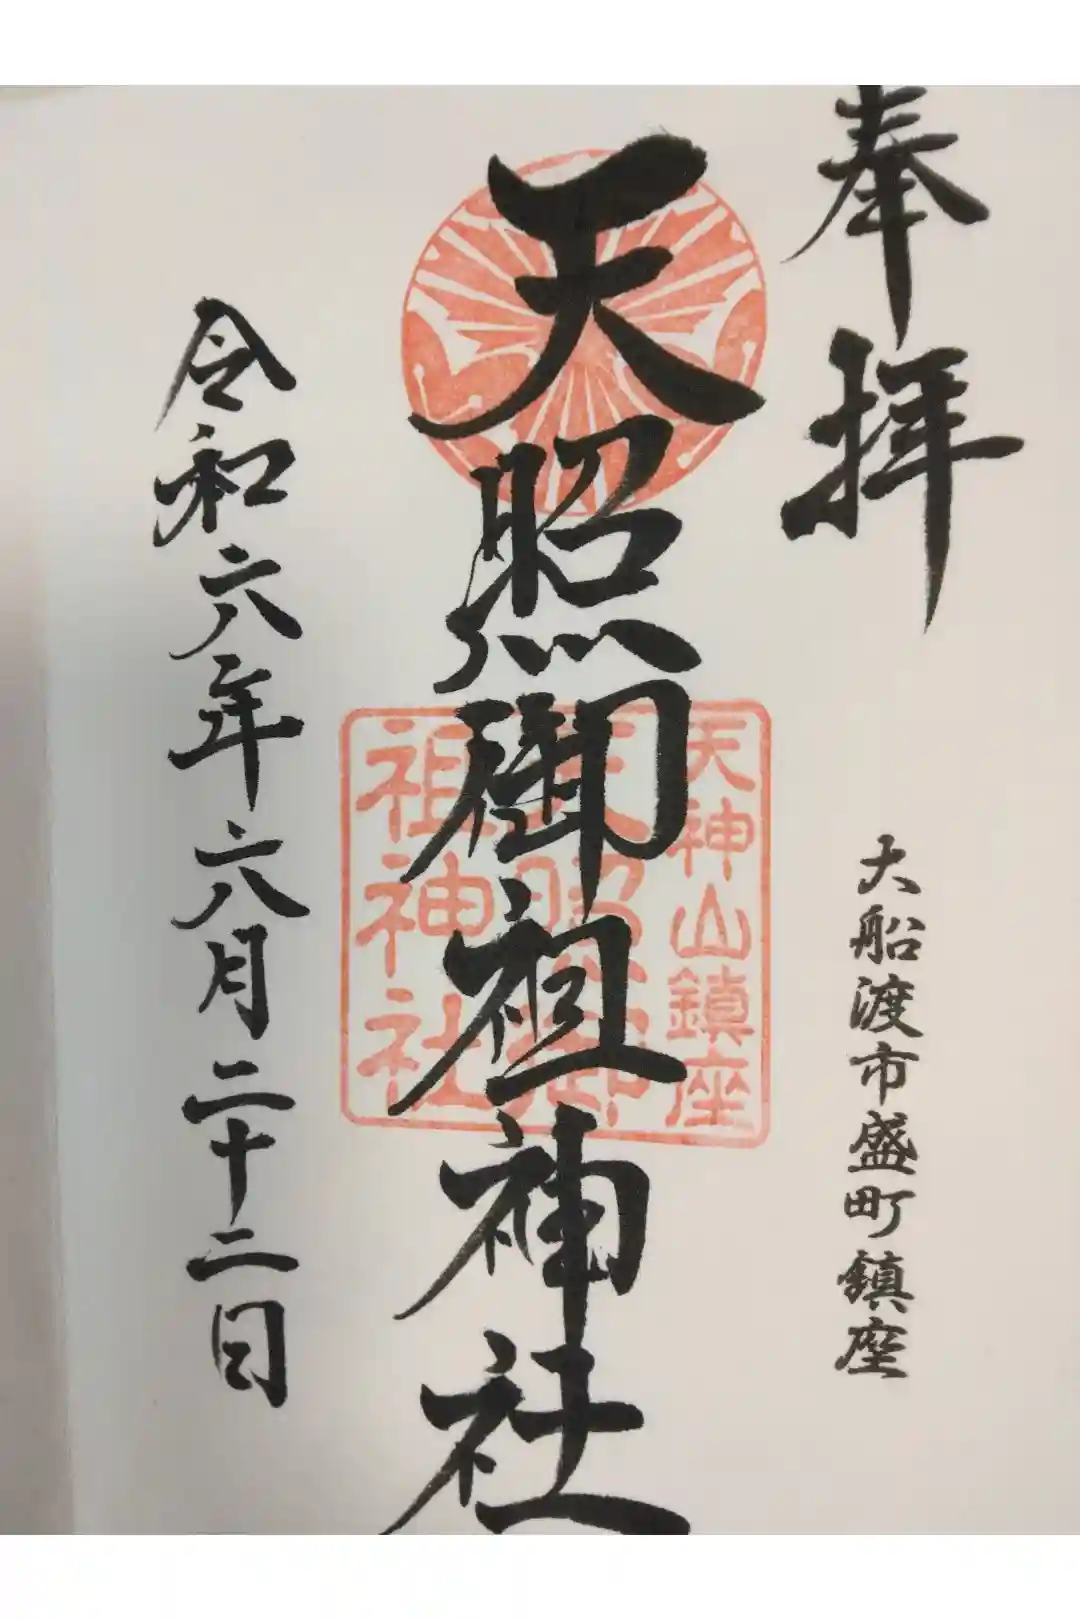 奉拝
大船渡市盛町鎮座
天照御祖神社
天神山鎮座
天照御
祖神社
令和六年六月二十二日